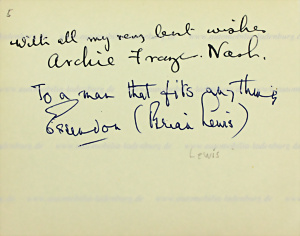 5
with all my very best wishes
Archie Frazer-Nash.
To a man that fits anything
Essendon (Brian Lewis)
Lewis